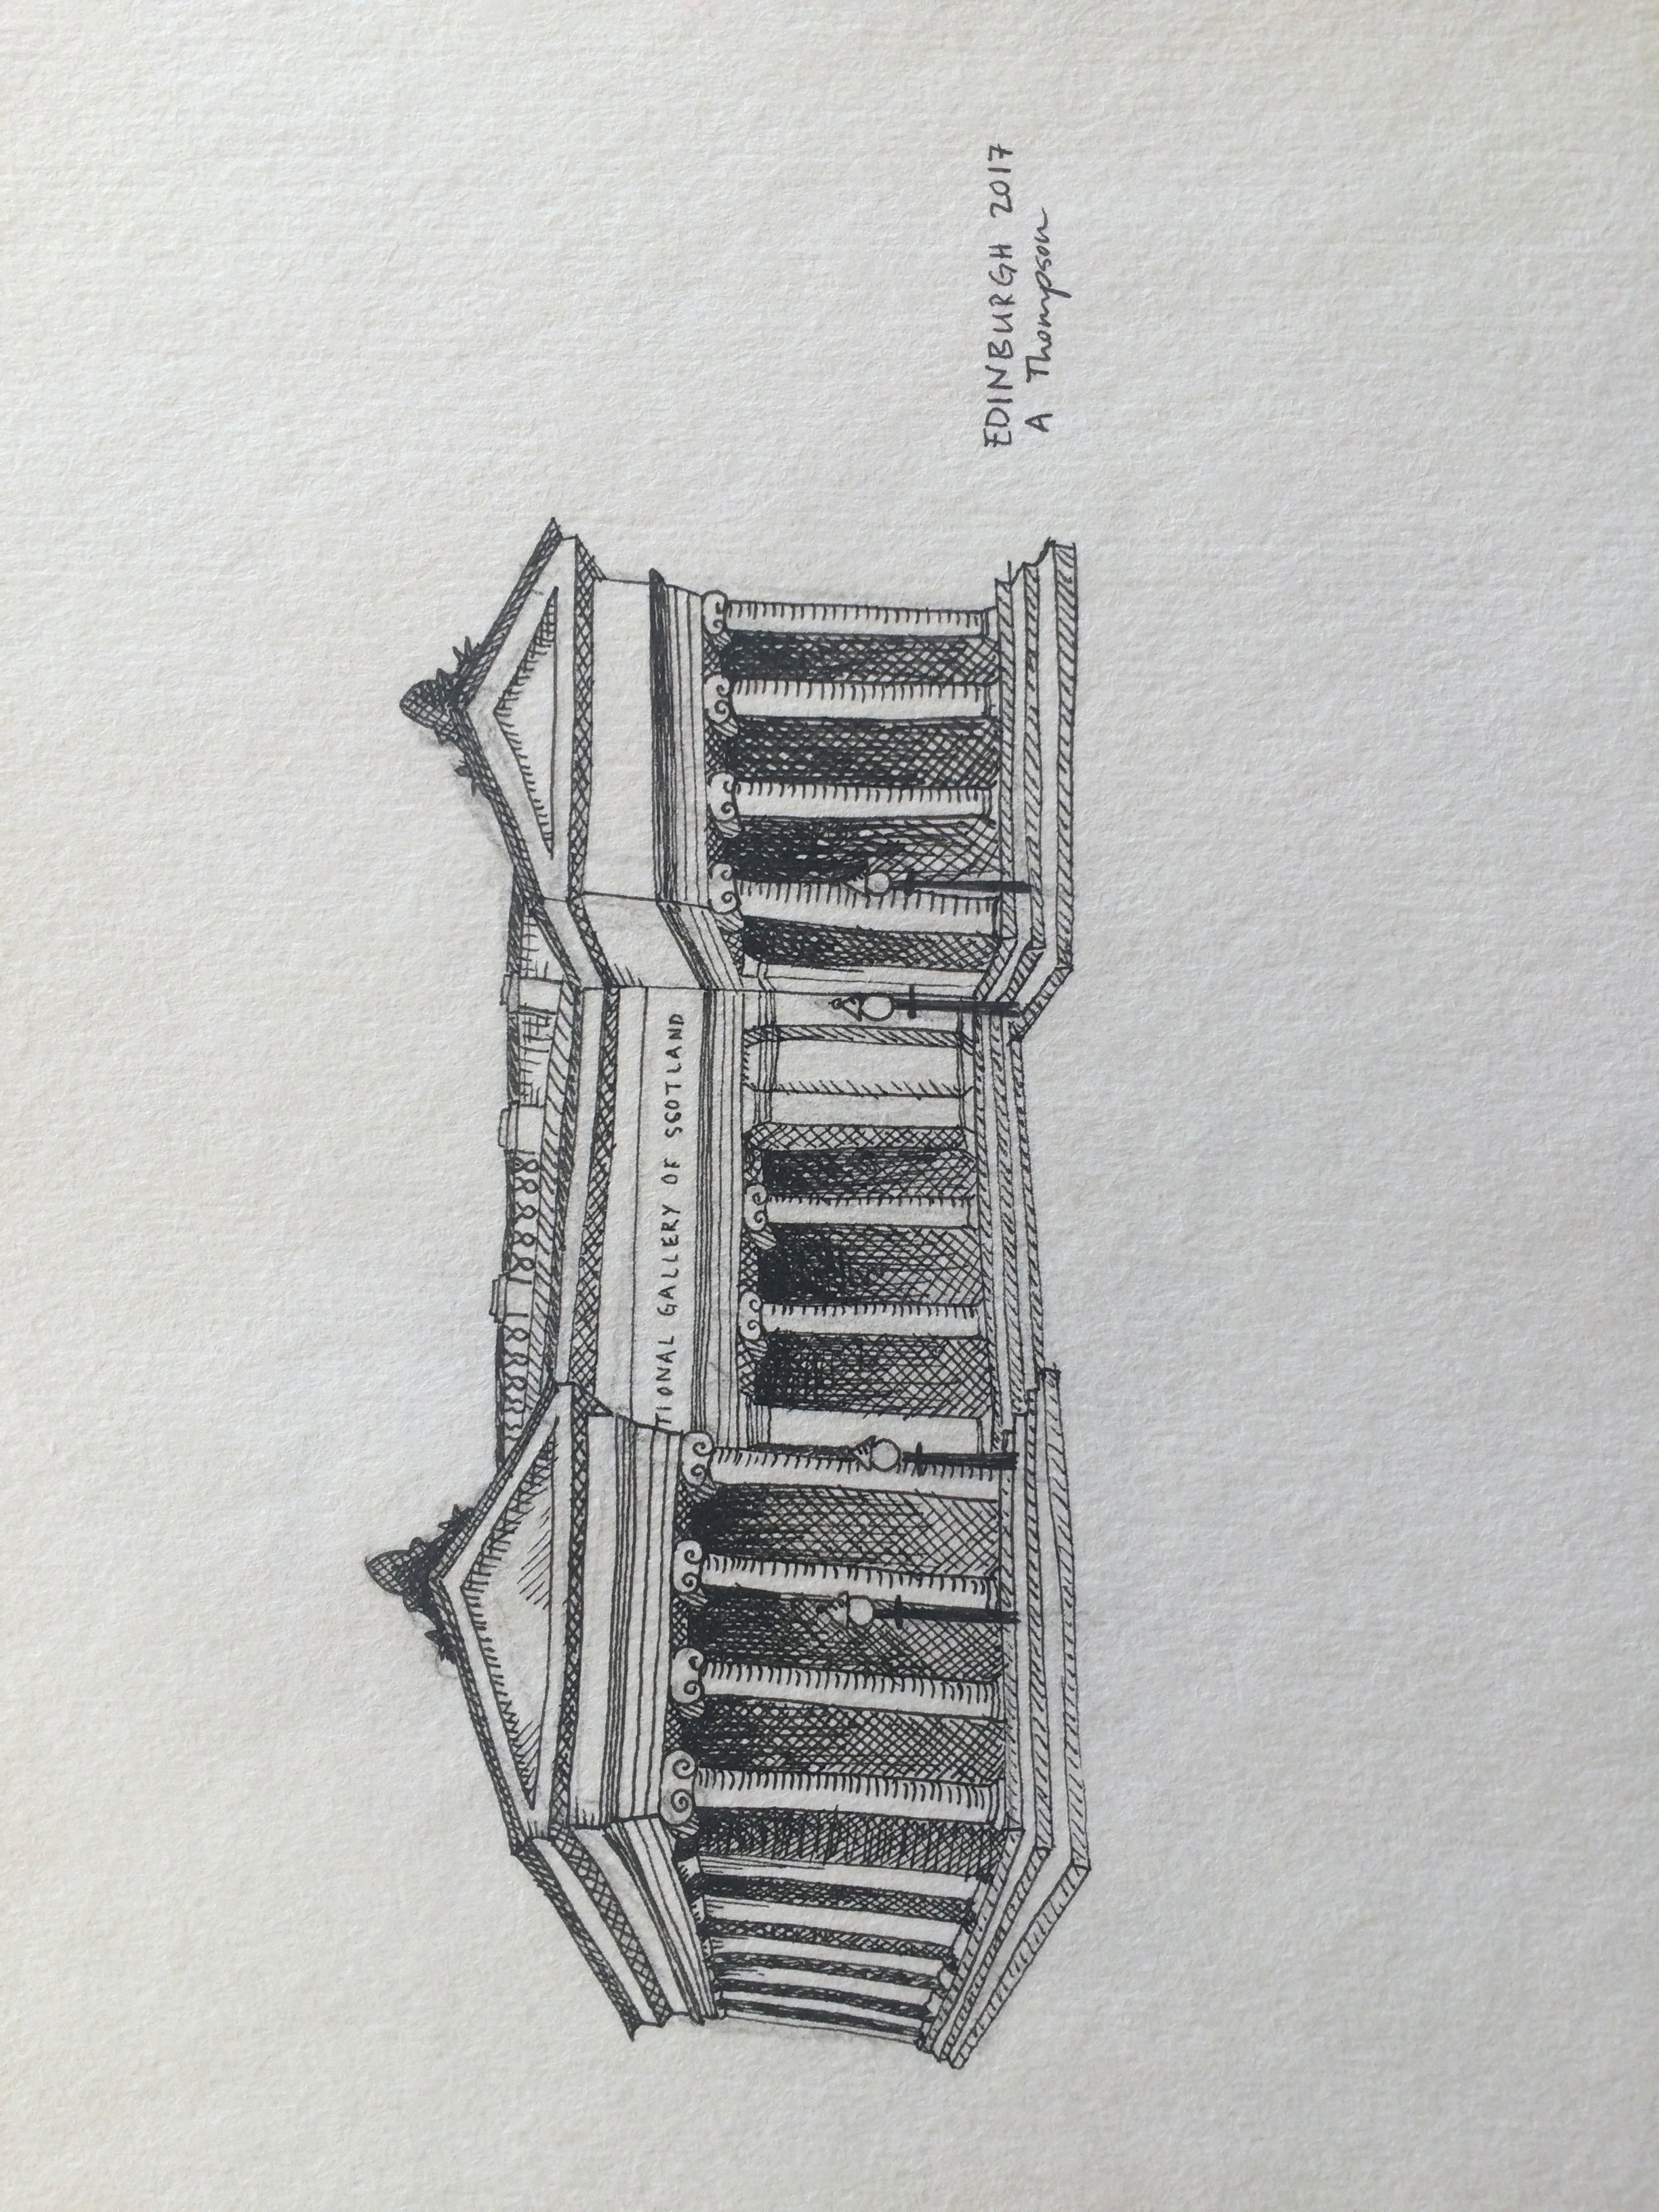 TIONAL GALLERY OF SCOTLAND
EDINBURGH 2017
A Thompson